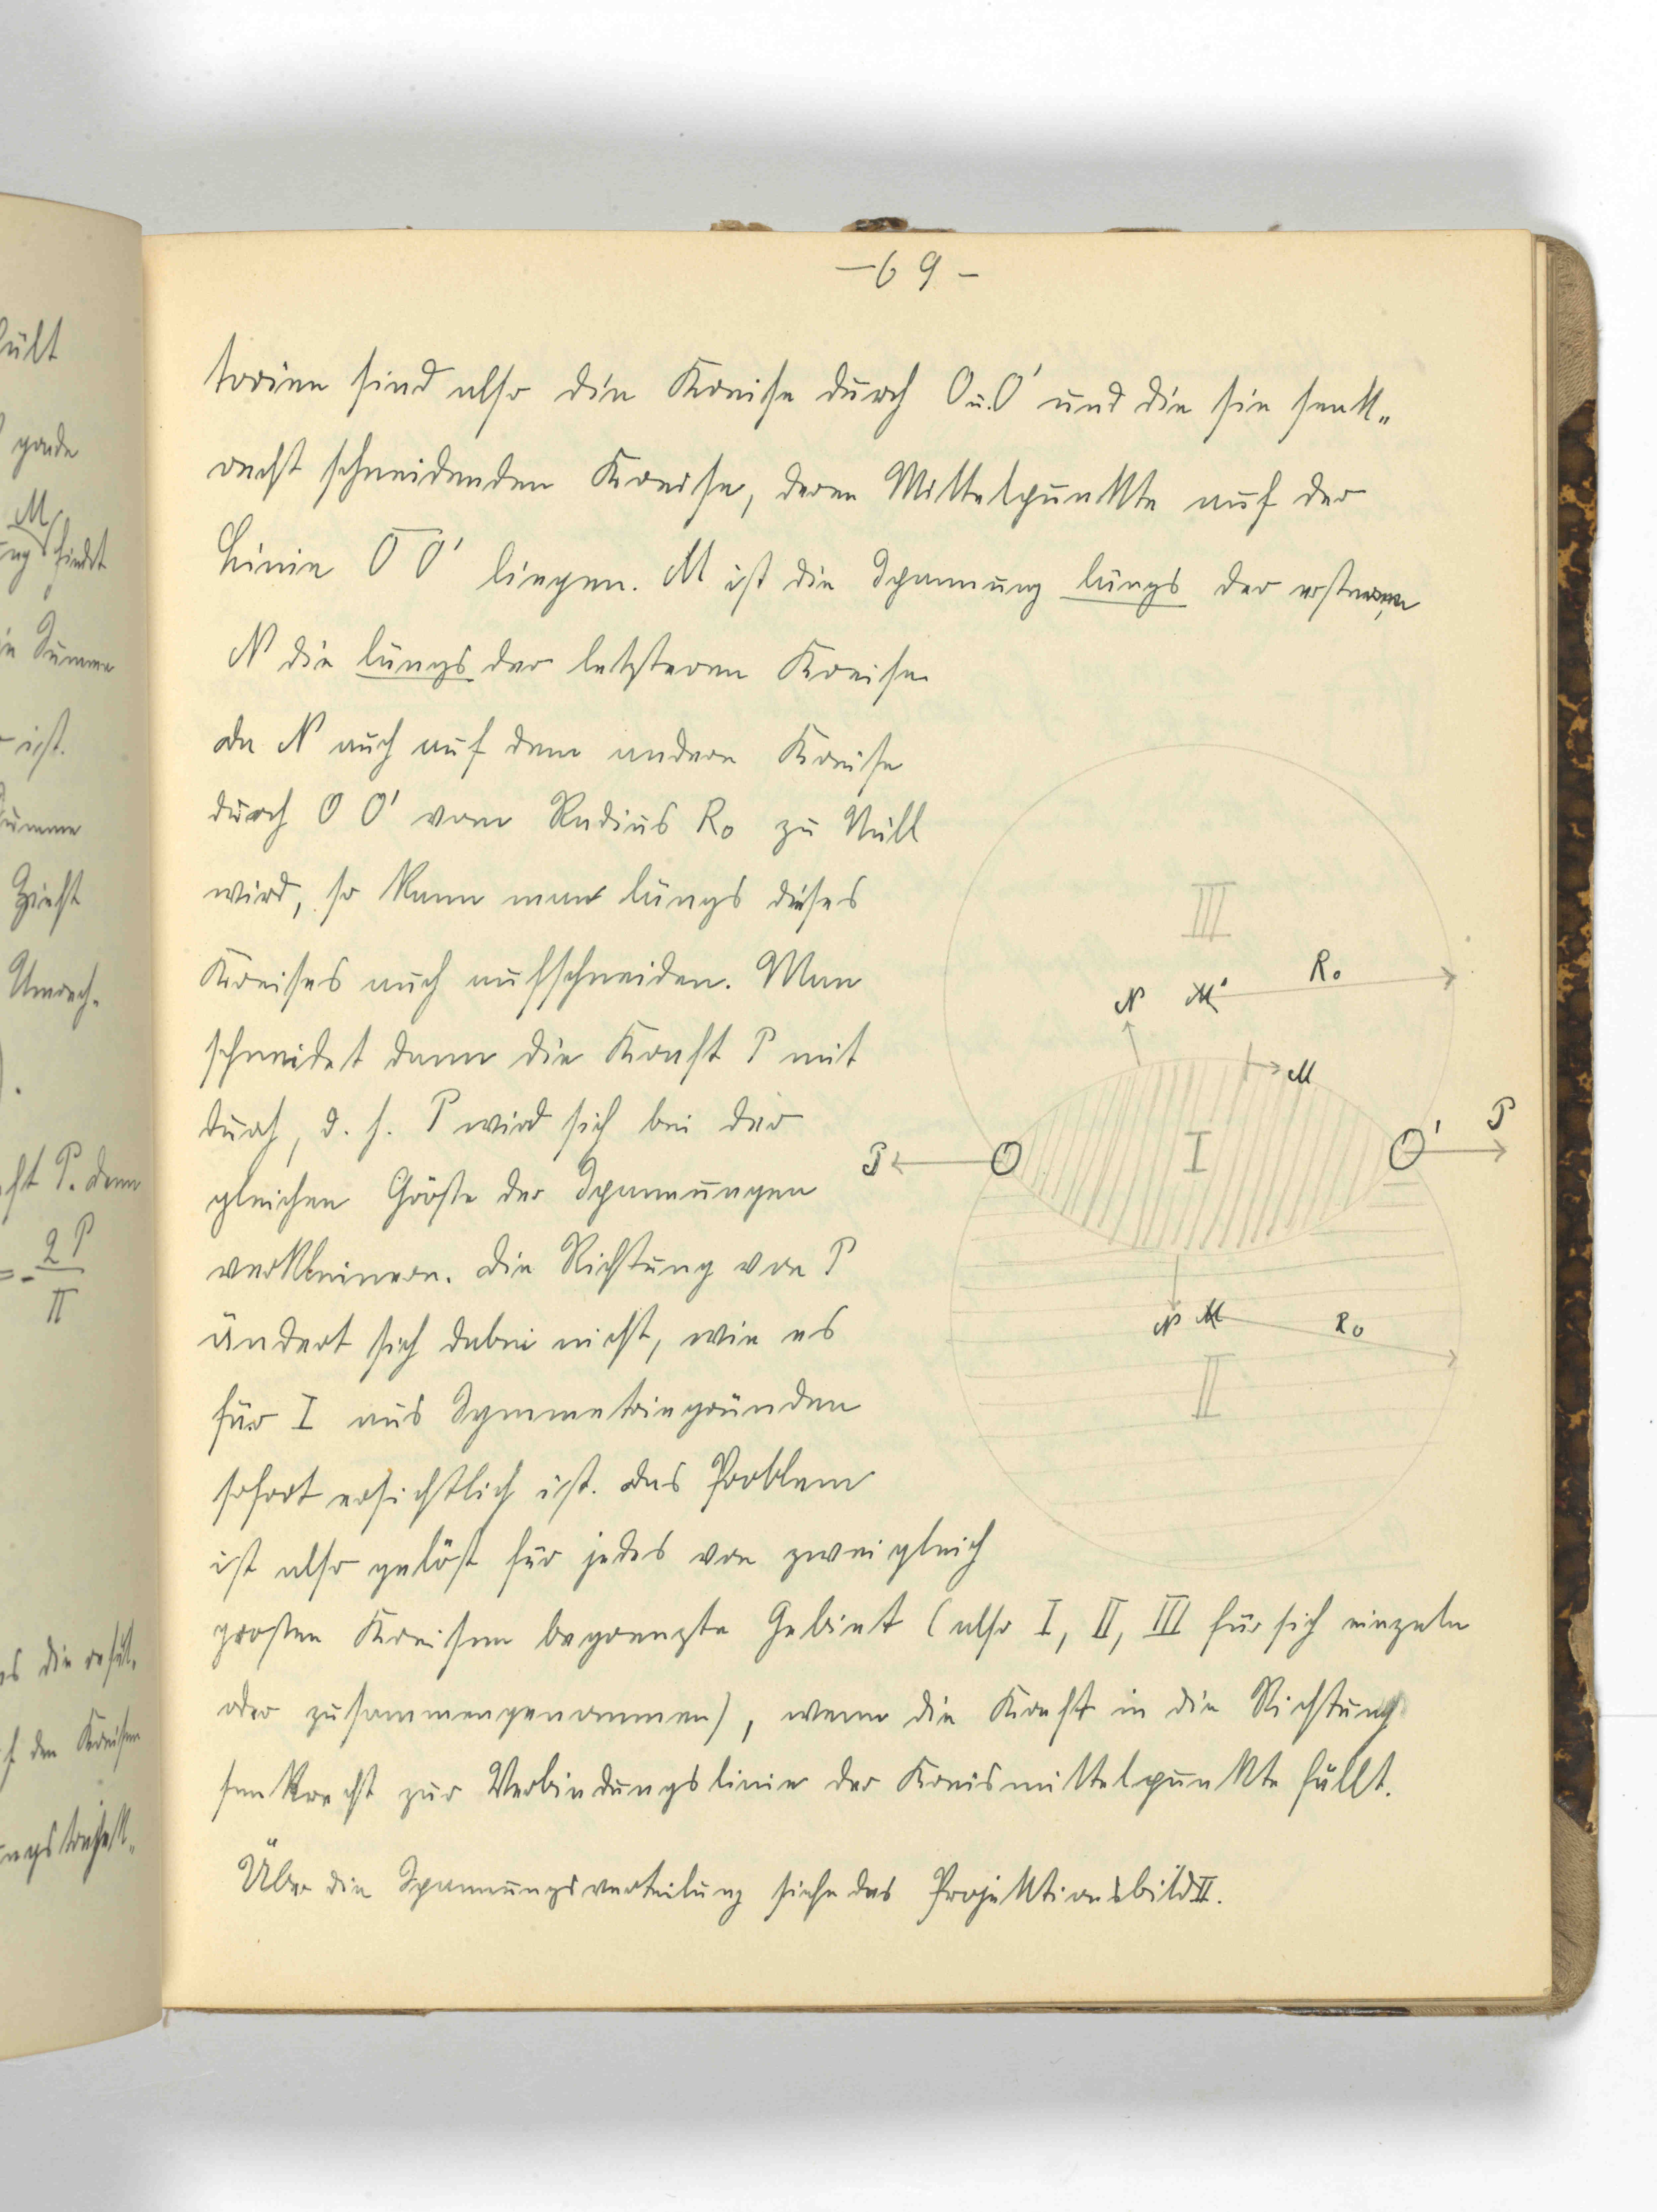 - 69 -
torien sind also die Kreise durch O u. O' und die sie senk„
recht schneidenden Kreise, deren Mittelpunkte auf der
Linie O O' liegen. M ist die Spannung längs der ersteren,
N die längs der letzteren Kreise.
Da N auch auf dem andern Kreise
durch O O' vom Radius R₀ zu Null
wird, so kann man längs dieses
Kreises auch aufschneiden. Man
schneidet dann die Kraft P mit
durch, d. h. P wird sich bei der
gleichen Größe der Spannungen
verkleinern. Die Richtung von P
ändert sich dabei nicht, wie es
für I aus Symmetriegründen
sofort ersichtlich ist. Das Problem
ist also gelöst für jedes von zwei gleich
großen Kreisen begrenzte Gebiet (also I, II, III für sich einzeln
oder zusammengenommen), wenn die Kraft in die Richtung
senkrecht zur Verbindungslinie der Kreismittelpunkte fällt.
Über die Spannungsverteilung siehe das Projektionsbild II.
III
R₀
N M'
M
P O I O' P
N M R₀
II
ült
M
findet
Summe
ist.
Zieht
Umrech-
P. denn
= - 2P
π
die resul-
f den Kreisen